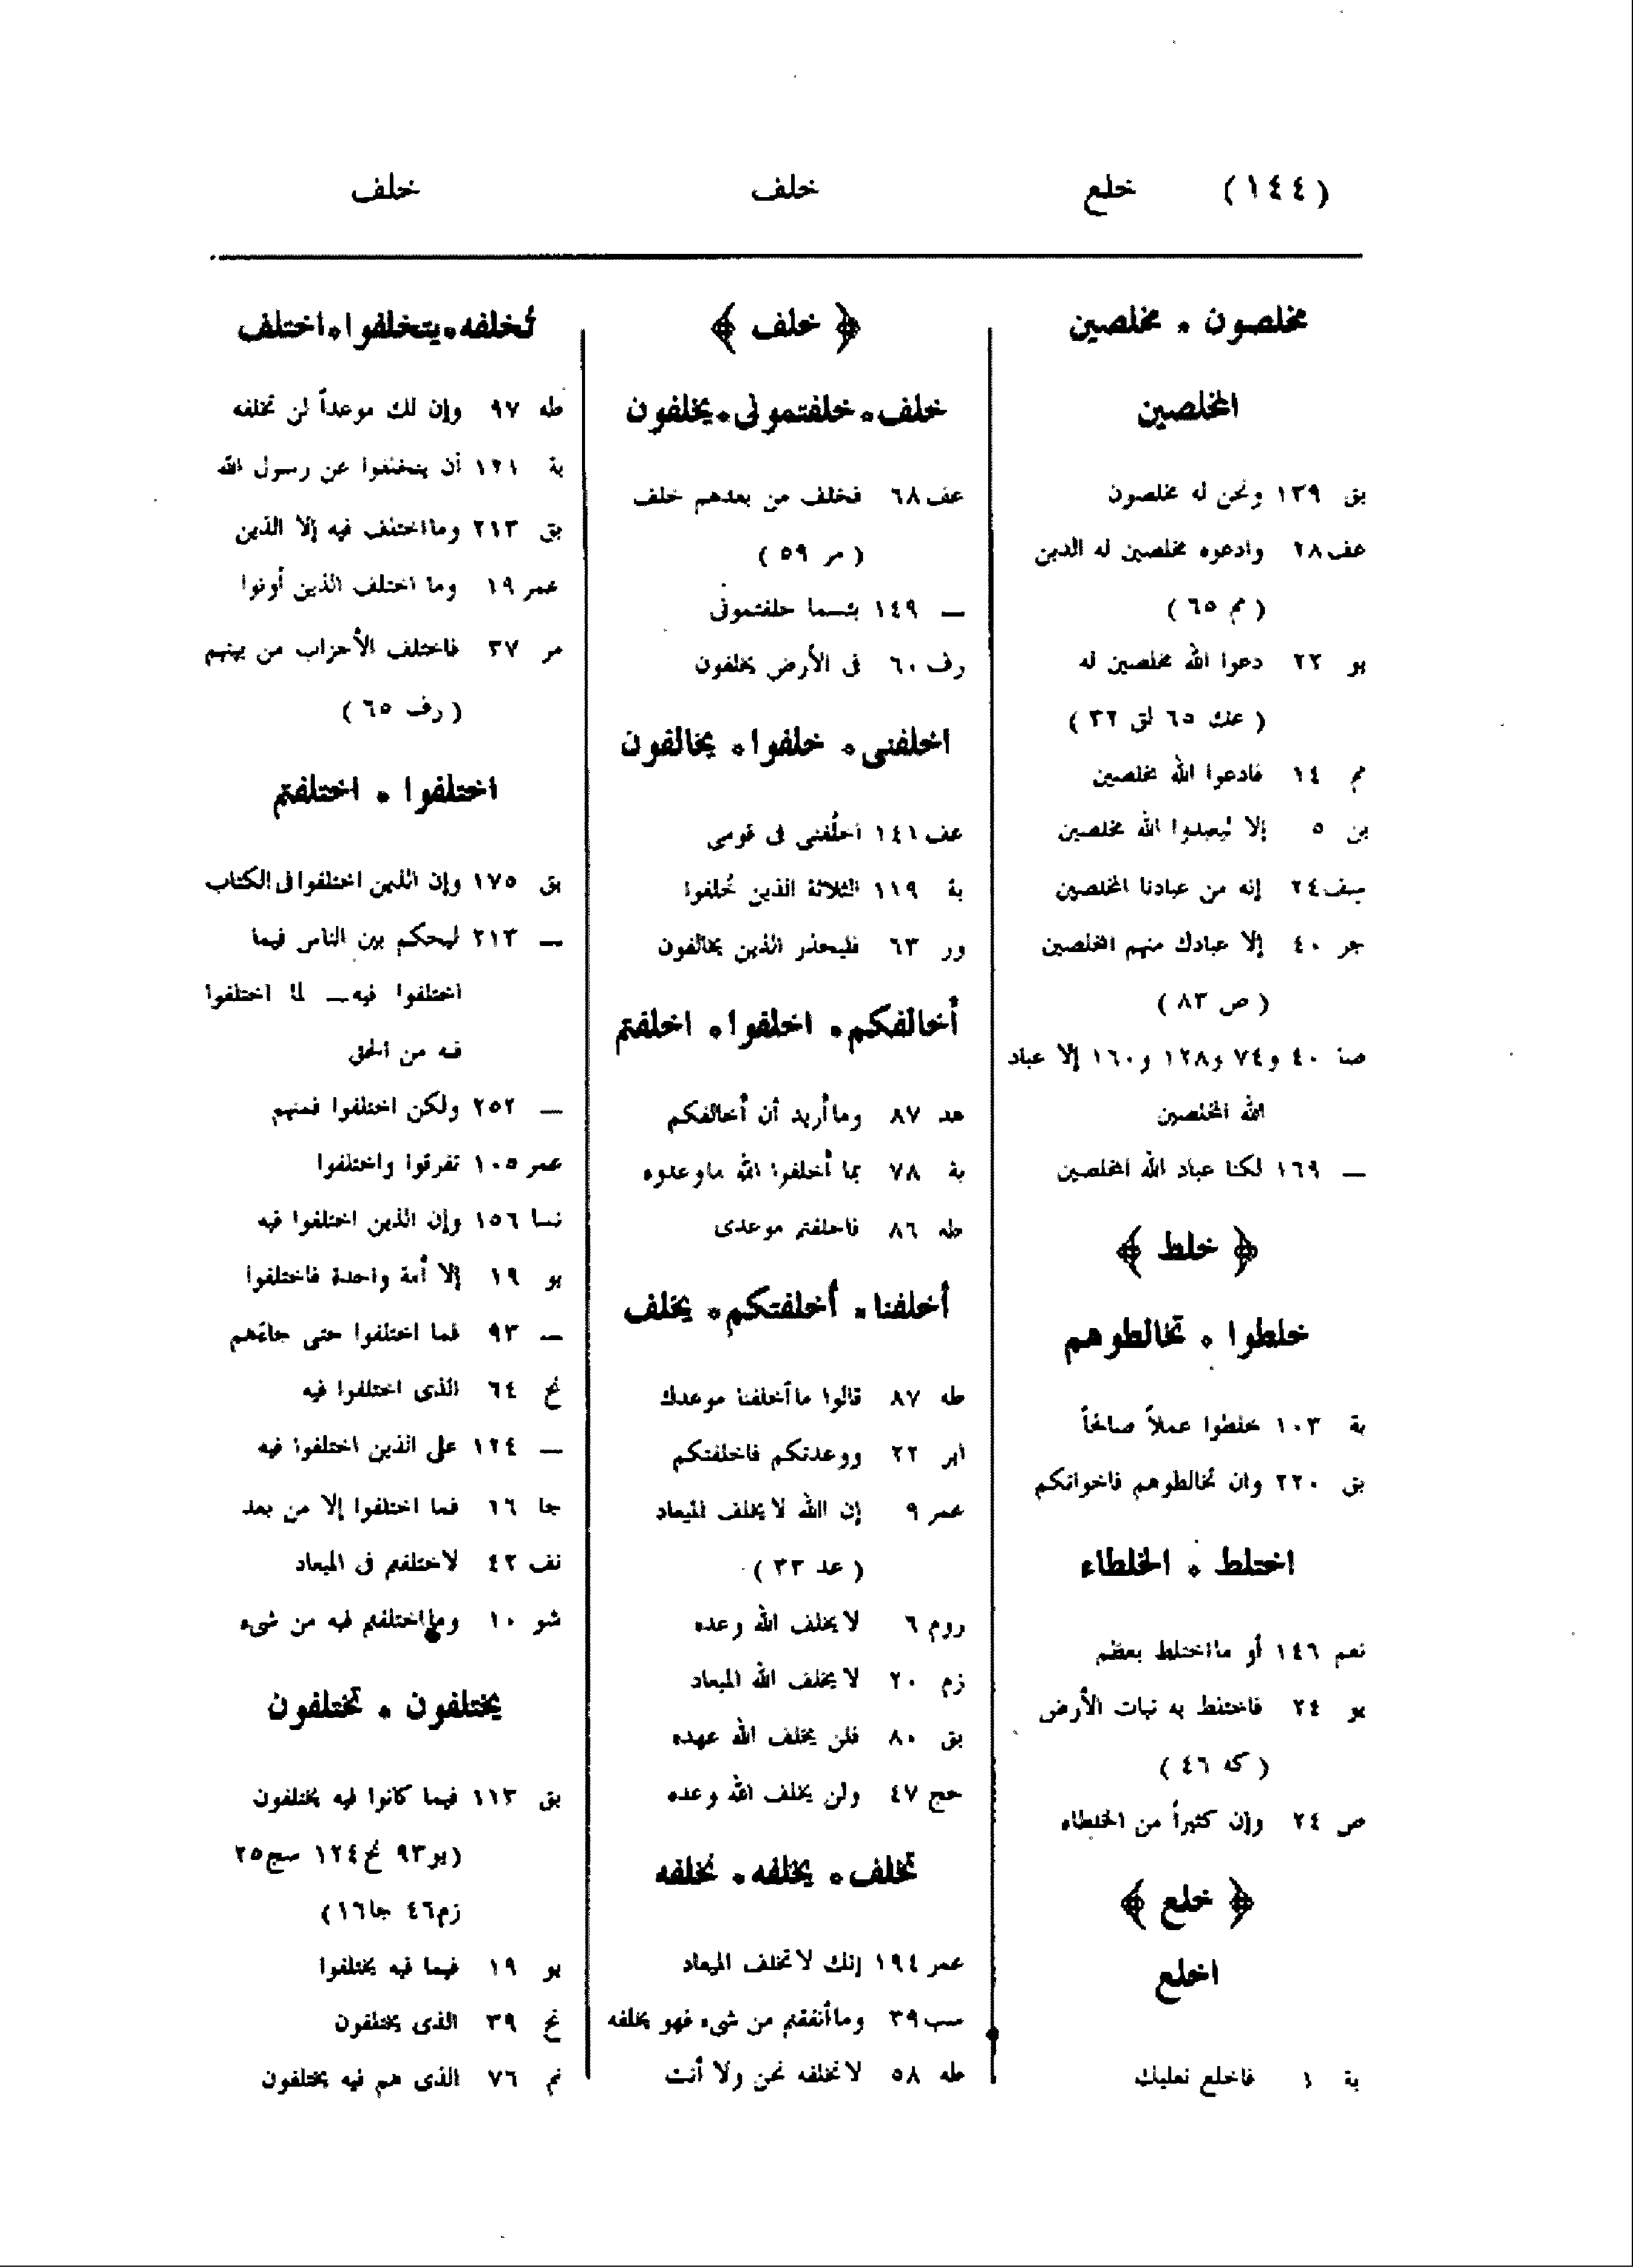 (١٤٤) خلع خلف خلف
مخلصون . مخلصين
المخلصين
بق ١٣٩ ونحن له مخلصون
عف ٢٨ وادعوه مخلصين له الدين
( مم ٦٥ )
يو ٢٢ دعوا الله مخلصين له
( عنك ٦٥ لق ٣٢ )
مم ١٤ فادعوا الله مخلصين
ين ٥ إلا ليعبدوا الله مخلصين
سيف ٢٤ إنه من عبادنا المخلصين
جر ٤٠ إلا عبادك منهم المخلصين
( ص ٨٣ )
صا ٤٠ و٧٤ و١٢٨ و١٦٠ إلا عباد
الله المخلصين
— ١٦٩ لكنا عباد الله المخلصين
﴿ خلط ﴾
خلطوا . تخالطوهم
بة ١٠٣ خلطوا عملاً صالحاً
بق ٢٢٠ وان تخالطوهم فاخوانكم
اختلط . الخلطاء
نعم ١٤٦ أو ما اختلط بعظم
يو ٢٤ فاختلط به نبات الأرض
( كه ٤٦ )
ص ٢٤ وإن كثيراً من الخلطاء
﴿ خلع ﴾
اخلع
بة ١ فاخلع نعليك
﴿ خلف ﴾
خلف . خلفتمونى . يخلفون
عف ٦٨ فخلف من بعدهم خلف
( مر ٥٩ )
— ١٤٩ بئسما خلفتمونى
رف ٦٠ فى الأرض يخلفون
اخلفنى . خلفوا . يخالفون
عف ١٤١ اخلُفنى فى قومى
بة ١١٩ الثلاثة الذين خُلفوا
ور ٦٣ فليحذر الذين يخالفون
أخالفكم . اخلفوا . اخلفتم
هد ٨٧ وما أريد أن أخالفكم
بة ٧٨ بما أخلفوا الله ما وعدوه
طه ٨٦ فاخلفتم موعدى
أخلفنا . أخلفتكم . يخلف
طه ٨٧ قالوا ما أخلفنا موعدك
ابر ٢٢ ووعدتكم فاخلفتكم
عمر ٩ إن الله لا يخلف الميعاد
( عد ٣٣ )
روم ٦ لا يخلف الله وعده
زم ٢٠ لا يخلف الله الميعاد
بق ٨٠ فلن يخلف الله عهده
حج ٤٧ ولن يخلف الله وعده
تخلف . يخلفه . نخلفه
عمر ١٩٤ إنك لا تخلف الميعاد
سب ٣٩ وما أنفقتم من شىء فهو يخلفه
طه ٥٨ لا نخلفه نحن ولا أنت
تُخلفه . يتخلفوا . اختلف
طه ٩٧ وإن لك موعداً لن تخلفه
بة ١٢١ أن يتخلفوا عن رسول الله
بق ٢١٣ وما اختلف فيه إلا الذين
عمر ١٩ وما اختلف الذين أوتوا
مر ٣٧ فاختلف الأحزاب من بينهم
( رف ٦٥ )
اختلفوا . اختلفتم
بق ١٧٥ وإن الذين اختلفوا فى الكتاب
— ٢١٣ ليحكم بين الناس فيما
اختلفوا فيه — لما اختلفوا
فيه من الحق
— ٢٥٢ ولكن اختلفوا فمنهم
عمر ١٠٥ تفرقوا واختلفوا
نسا ١٥٦ وإن الذين اختلفوا فيه
يو ١٩ إلا أمة واحدة فاختلفوا
— ٩٣ فما اختلفوا حتى جاءهم
نح ٦٤ الذى اختلفوا فيه
— ١٢٤ على الذين اختلفوا فيه
جا ١٦ فما اختلفوا إلا من بعد
نف ٤٢ لاختلفتم فى الميعاد
شو ١٠ وما اختلفتم فيه من شىء
يختلفون . تختلفون
بق ١١٣ فيما كانوا فيه يختلفون
(يو ٩٣ نح ١٢٤ سج ٢٥
زم ٤٦ جا ١٦)
يو ١٩ فيما فيه يختلفوا
نح ٣٩ الذى يختلفون
نم ٧٦ الذى هم فيه يختلفون